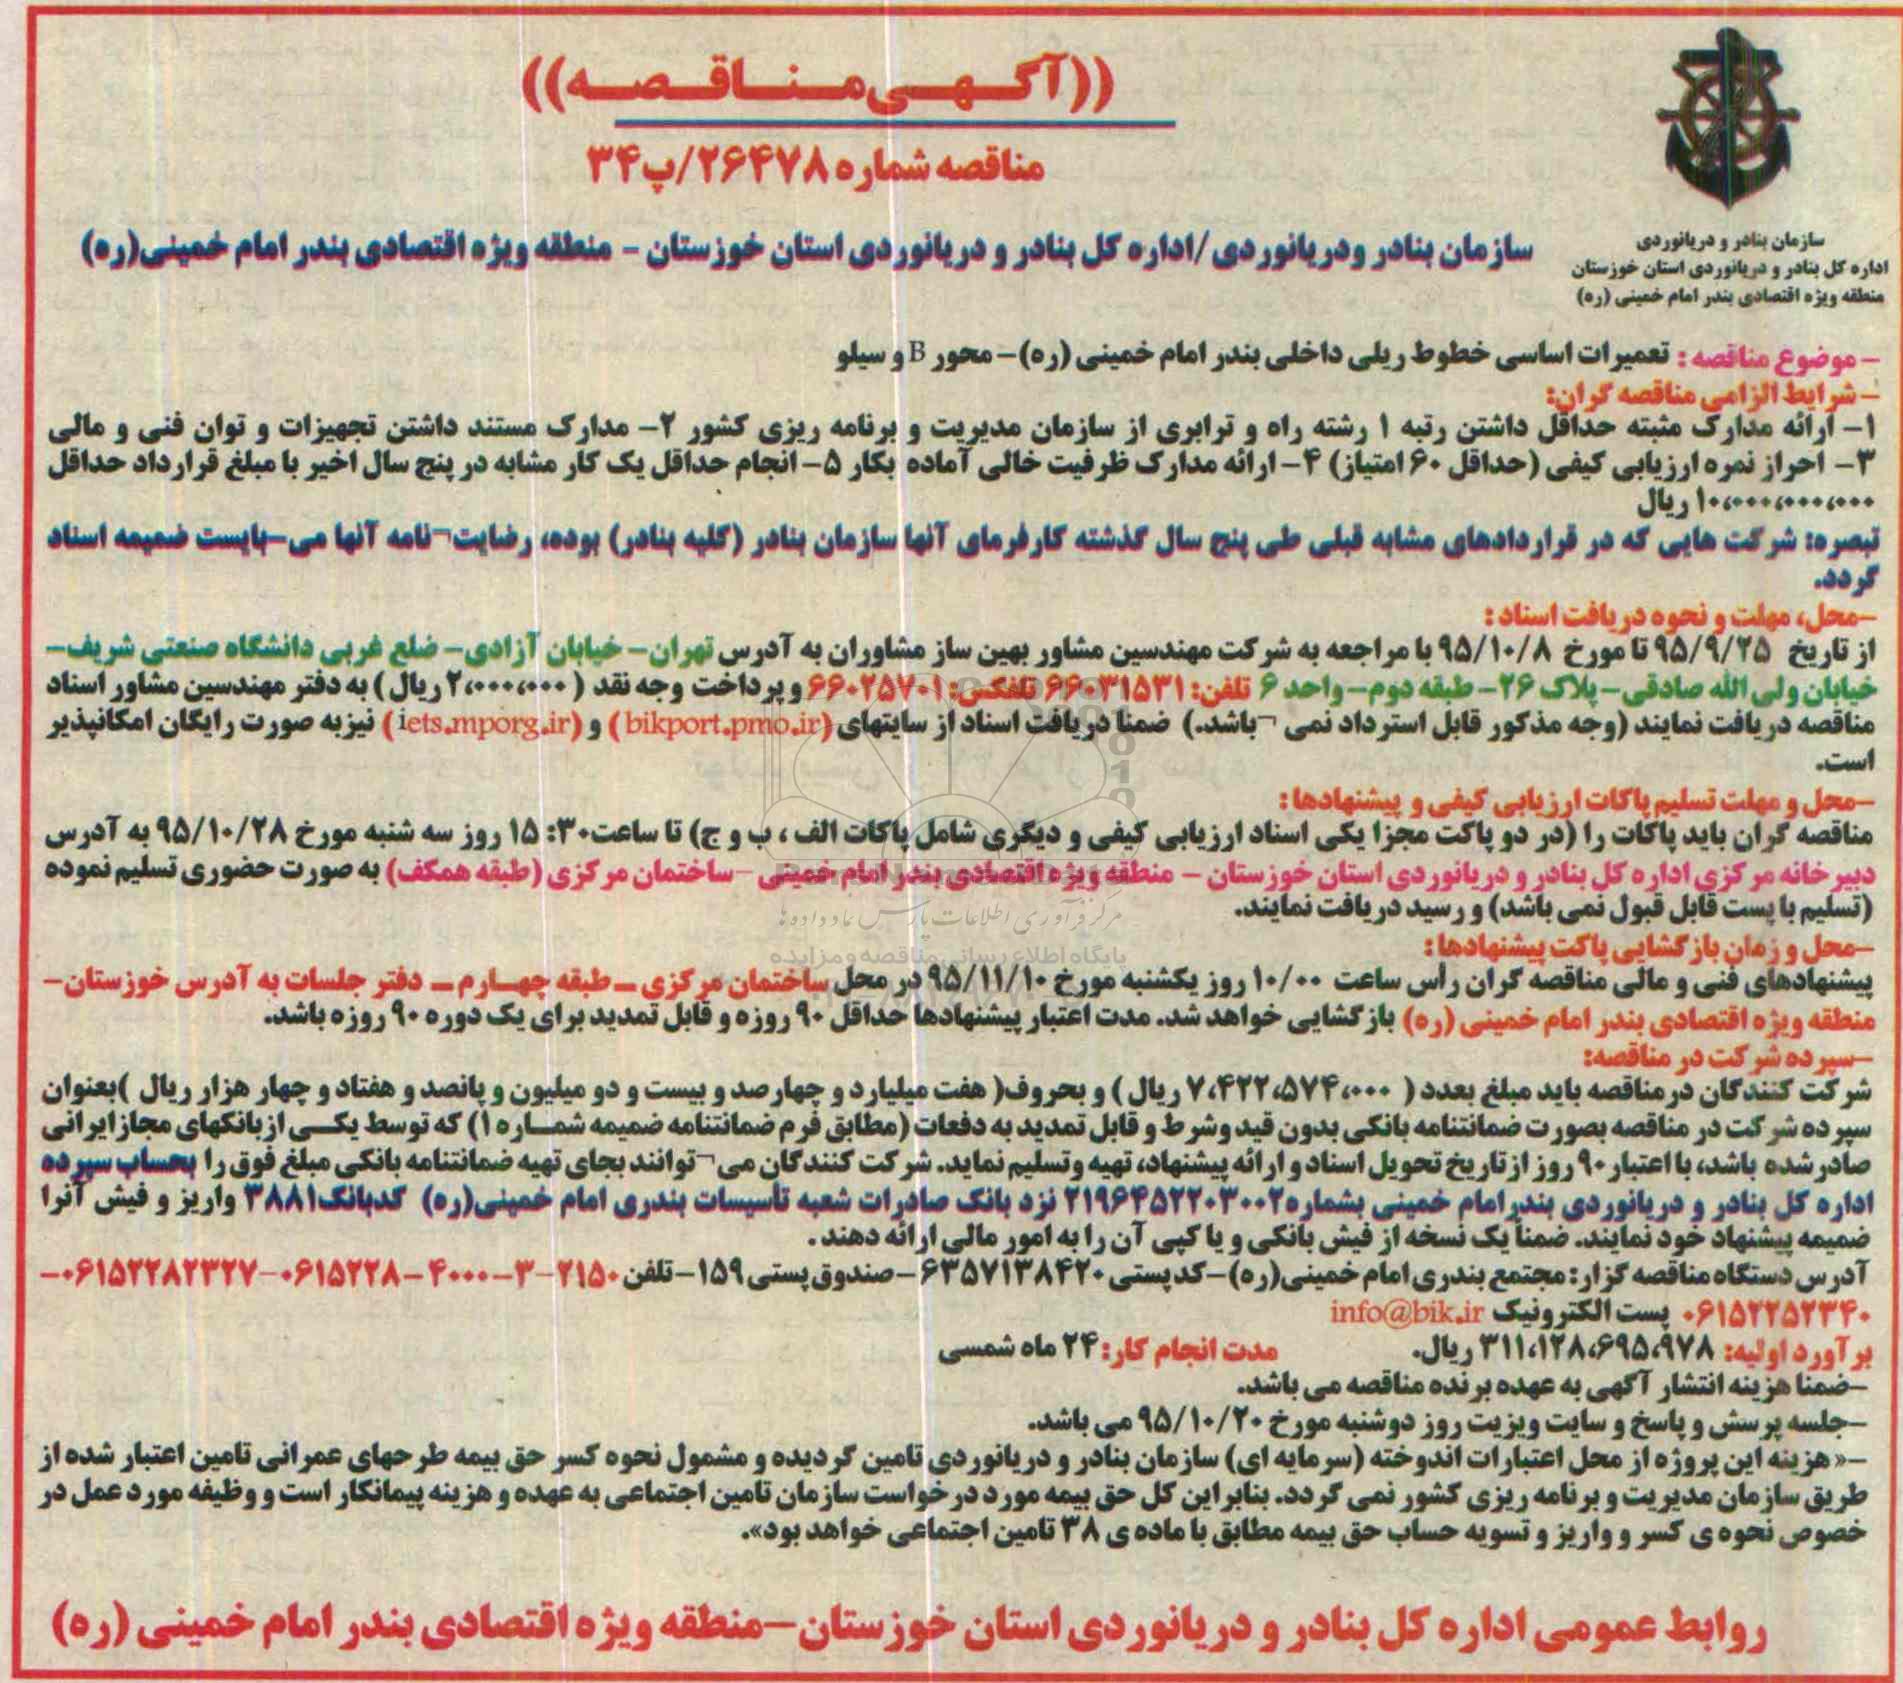 ((آگهی مناقصه))
مناقصه شماره ۲۶۴۷۸/پ۳۴
سازمان بنادر و دریانوردی
اداره کل بنادر و دریانوردی استان خوزستان
منطقه ویژه اقتصادی بندر امام خمینی (ره)
سازمان بنادر ودریانوردی /اداره کل بنادر و دریانوردی استان خوزستان - منطقه ویژه اقتصادی بندر امام خمینی(ره)
- موضوع مناقصه : تعمیرات اساسی خطوط ریلی داخلی بندر امام خمینی (ره)- محور B و سیلو
- شرایط الزامی مناقصه گران:
۱- ارائه مدارک مثبته حداقل داشتن رتبه ۱ رشته راه و ترابری از سازمان مدیریت و برنامه ریزی کشور ۲- مدارک مستند داشتن تجهیزات و توان فنی و مالی
۳- احراز نمره ارزیابی کیفی (حداقل ۶۰ امتیاز) ۴- ارائه مدارک ظرفیت خالی آماده بکار ۵- انجام حداقل یک کار مشابه در پنج سال اخیر با مبلغ قرارداد حداقل
۱۰،۰۰۰،۰۰۰،۰۰۰ ریال
تبصره: شرکت هایی که در قراردادهای مشابه قبلی طی پنج سال گذشته کارفرمای آنها سازمان بنادر (کلیه بنادر) بوده، رضایت¬نامه آنها می-بایست ضمیمه اسناد
گردد.
-محل، مهلت و نحوه دریافت اسناد :
از تاریخ ۹۵/۹/۲۵ تا مورخ ۹۵/۱۰/۸ با مراجعه به شرکت مهندسین مشاور بهین ساز مشاوران به آدرس تهران- خیابان آزادی- ضلع غربی دانشگاه صنعتی شریف-
خیابان ولی الله صادقی- پلاک ۲۶- طبقه دوم- واحد ۶ تلفن: ۶۶۰۳۱۵۳۱ تلفکس: ۶۶۰۲۵۷۰۱ و پرداخت وجه نقد (۲،۰۰۰،۰۰۰ ریال) به دفتر مهندسین مشاور اسناد
مناقصه دریافت نمایند (وجه مذکور قابل استرداد نمی ¬باشد.) ضمنا دریافت اسناد از سایتهای (bikport.pmo.ir) و (iets.mporg.ir) نیز به صورت رایگان امکانپذیر
است.
-محل و مهلت تسلیم پاکات ارزیابی کیفی و پیشنهادها :
مناقصه گران باید پاکات را (در دو پاکت مجزا یکی اسناد ارزیابی کیفی و دیگری شامل پاکات الف ، ب و ج) تا ساعت۱۵:۳۰ روز سه شنبه مورخ ۹۵/۱۰/۲۸ به آدرس
دبیرخانه مرکزی اداره کل بنادر و دریانوردی استان خوزستان - منطقه ویژه اقتصادی بندر امام خمینی -ساختمان مرکزی (طبقه همکف) به صورت حضوری تسلیم نموده
(تسلیم با پست قابل قبول نمی باشد) و رسید دریافت نمایند.
مرکز فرآوری اطلاعات پارس نماد داده ها
پایگاه اطلاع رسانی مناقصه و مزایده
-محل و زمان بازگشایی پاکت پیشنهادها :
پیشنهادهای فنی و مالی مناقصه گران رأس ساعت ۱۰/۰۰ روز یکشنبه مورخ ۹۵/۱۱/۱۰ در محل ساختمان مرکزی – طبقه چهارم – دفتر جلسات به آدرس خوزستان-
منطقه ویژه اقتصادی بندر امام خمینی (ره) بازگشایی خواهد شد. مدت اعتبار پیشنهادها حداقل ۹۰ روزه و قابل تمدید برای یک دوره ۹۰ روزه باشد.
-سپرده شرکت در مناقصه:
شرکت کنندگان درمناقصه باید مبلغ بعدد ( ۷،۴۲۲،۵۷۴،۰۰۰ ریال ) و بحروف( هفت میلیارد و چهارصد و بیست و دو میلیون و پانصد و هفتاد و چهار هزار ریال )بعنوان
سپرده شرکت در مناقصه بصورت ضمانتنامه بانکی بدون قید وشرط و قابل تمدید به دفعات (مطابق فرم ضمانتنامه ضمیمه شماره ۱) که توسط یکی ازبانکهای مجازایرانی
صادرشده باشد، با اعتبار ۹۰ روز ازتاریخ تحویل اسناد و ارائه پیشنهاد، تهیه وتسلیم نماید. شرکت کنندگان می ¬توانند بجای تهیه ضمانتنامه بانکی مبلغ فوق را بحساب سپرده
اداره کل بنادر و دریانوردی بندرامام خمینی بشماره۲۱۹۶۴۵۲۲۰۳۰۰۲ نزد بانک صادرات شعبه تاسیسات بندری امام خمینی(ره) کدبانک۳۸۸۱ واریز و فیش آنرا
ضمیمه پیشنهاد خود نمایند. ضمناً یک نسخه از فیش بانکی و یا کپی آن را به امور مالی ارائه دهند .
آدرس دستگاه مناقصه گزار: مجتمع بندری امام خمینی(ره)-کدپستی ۶۳۵۷۱۳۸۴۲۰-صندوق پستی ۱۵۹-تلفن ۲۱۵۰-۳-۴۰۰۰-۰۶۱۵۲۲۸-۰۶۱۵۲۲۸۲۳۲۷-
۰۶۱۵۲۲۵۲۳۴۰ پست الکترونیک info@bik.ir
برآورد اولیه: ۳۱۱،۱۲۸،۶۹۵،۹۷۸ ریال. مدت انجام کار: ۲۴ ماه شمسی
-ضمنا هزینه انتشار آگهی به عهده برنده مناقصه می باشد.
-جلسه پرسش و پاسخ و سایت ویزیت روز دوشنبه مورخ ۹۵/۱۰/۲۰ می باشد.
-«هزینه این پروژه از محل اعتبارات اندوخته (سرمایه ای) سازمان بنادر و دریانوردی تامین گردیده و مشمول نحوه کسر حق بیمه طرحهای عمرانی تامین اعتبار شده از
طریق سازمان مدیریت و برنامه ریزی کشور نمی گردد. بنابراین کل حق بیمه مورد درخواست سازمان تامین اجتماعی به عهده و هزینه پیمانکار است و وظیفه مورد عمل در
خصوص نحوه ی کسر و واریز و تسویه حساب حق بیمه مطابق با ماده ی ۳۸ تامین اجتماعی خواهد بود».
روابط عمومی اداره کل بنادر و دریانوردی استان خوزستان-منطقه ویژه اقتصادی بندر امام خمینی (ره)